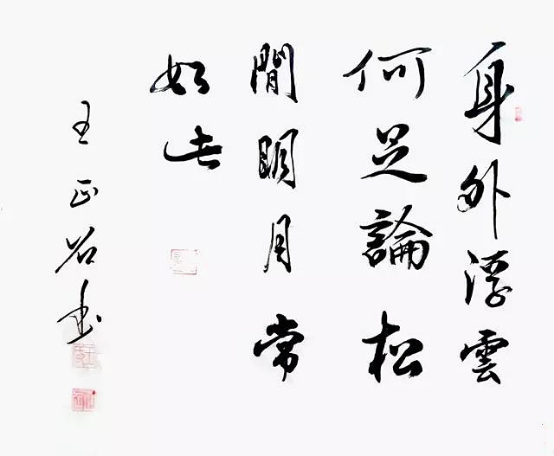 身外浮雲
何足論松
間明月常
如此
王正谷書